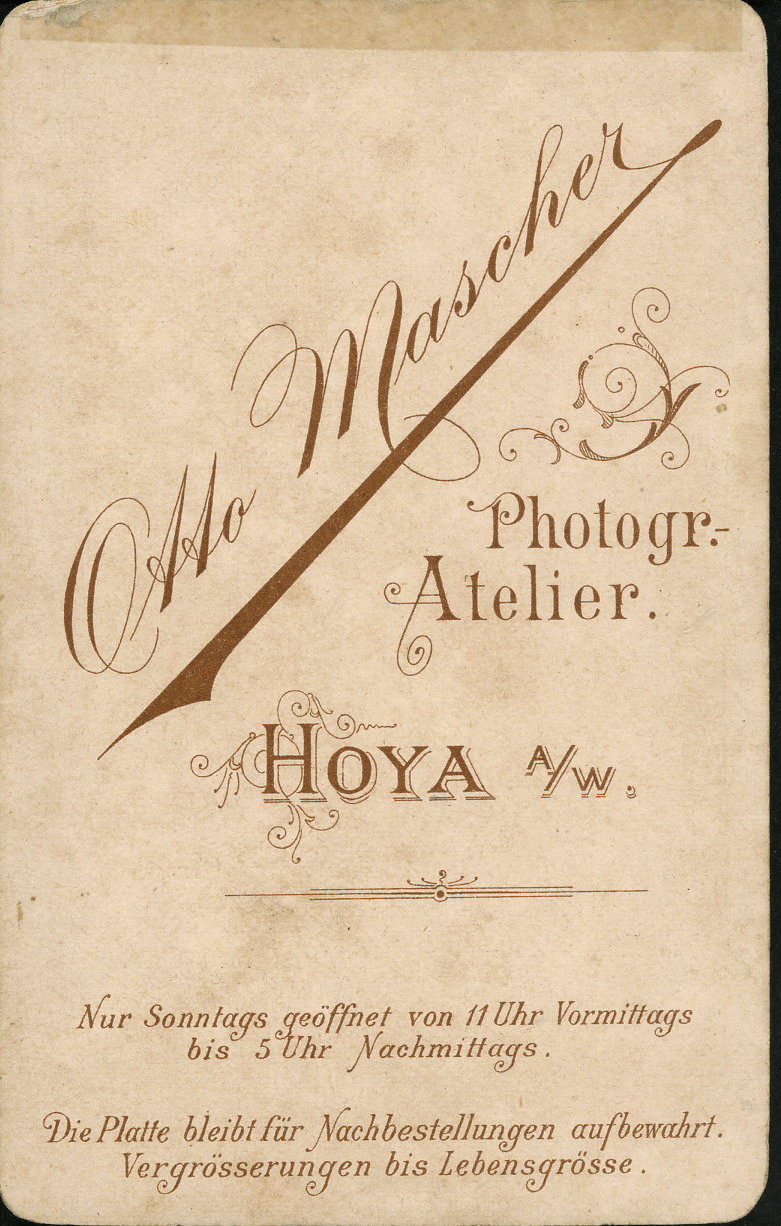 Otto Mascher
Photogr.-
Atelier.
HOYA A/W.
Nur Sonntags geöffnet von 11 Uhr Vormittags
bis 5 Uhr Nachmittags.
Die Platte bleibt für Nachbestellungen aufbewahrt.
Vergrösserungen bis Lebensgrösse.